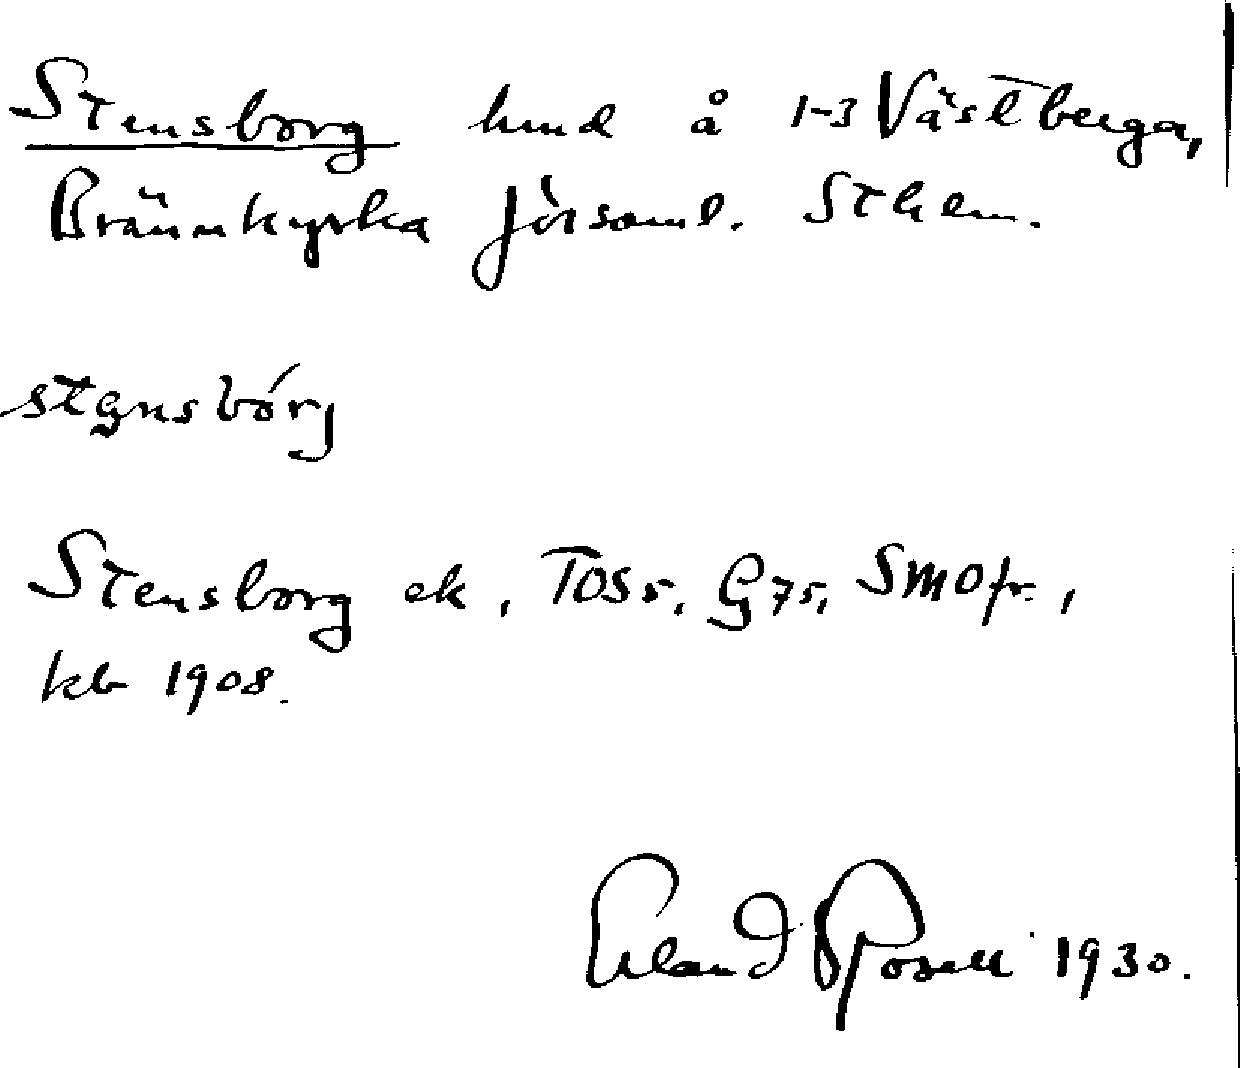 Stensborg hmd å 1-3 Västberga,
Brännkyrka förs­aml. Sthlm.
stensbórj
Stensborg ek, TOS 5. G75,
kb 1908.
Erland Rosell 1930.